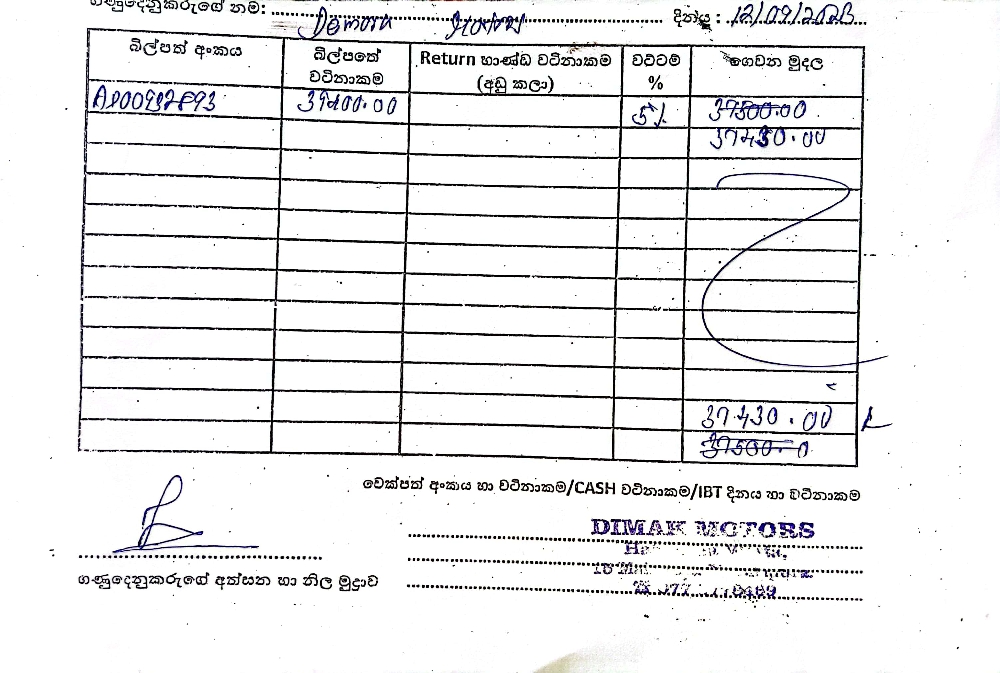 ගණුදෙනුකරුගේ නම: දිනය : 12/09/2023
බිල්පත් අංකය බිල්පතේ වටිනාකම Return භාණ්ඩ වටිනාකම (අඩු කලා) වට්ටම % ගෙවන මුදල
39400.00 5% 37500.00
37430.00
37430.00
37500.0
චෙක්පත් අංකය හා වටිනාකම/CASH වටිනාකම/IBT දිනය හා වටිනාකම
DIMAK MOTORS
ගණුදෙනුකරුගේ අත්සන හා නිල මුද්‍රාව